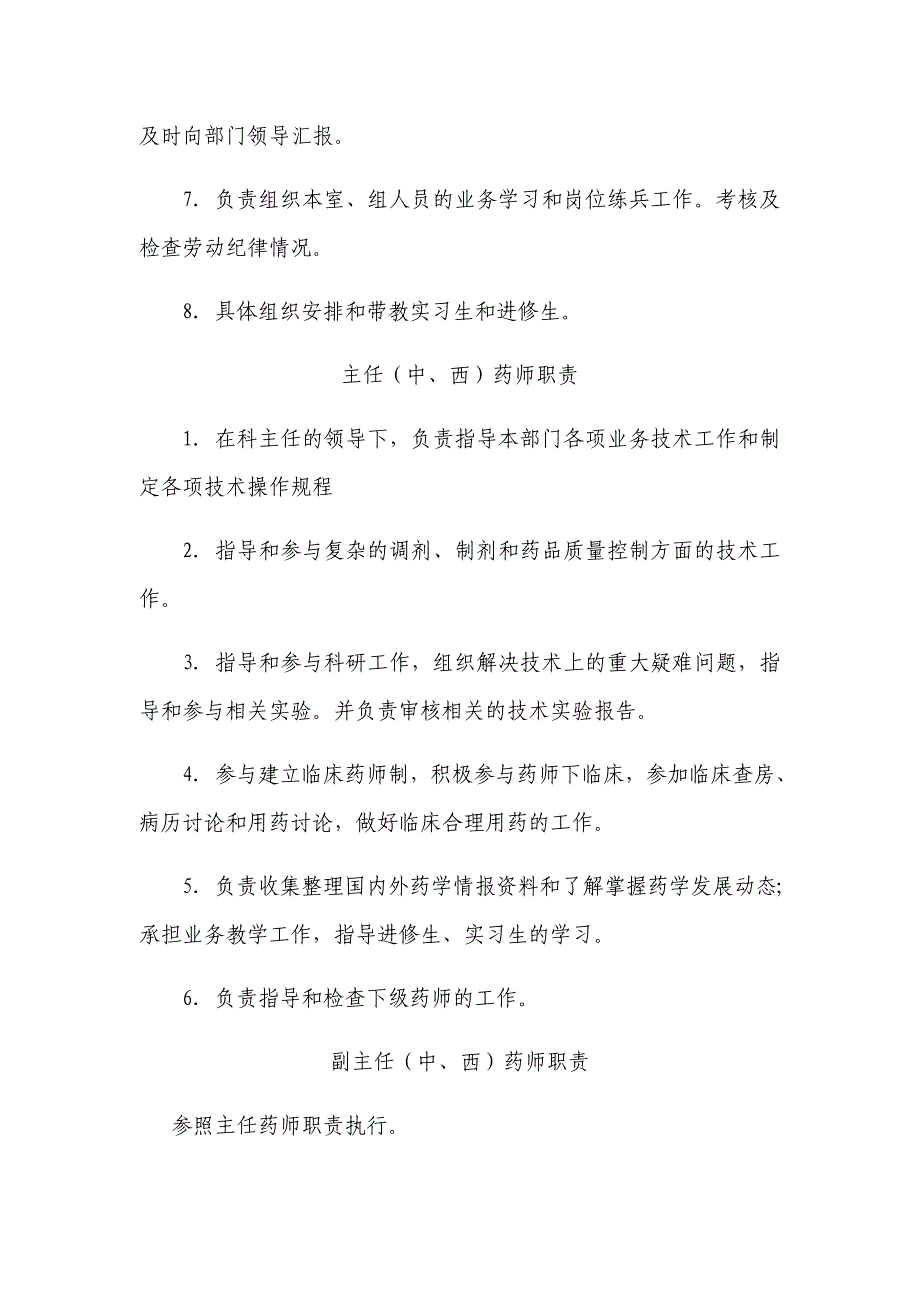 及时向部门领导汇报。
7. 负责组织本室、组人员的业务学习和岗位练兵工作。考核及
检查劳动纪律情况。
8. 具体组织安排和带教实习生和进修生。
主任（中、西）药师职责
1. 在科主任的领导下，负责指导本部门各项业务技术工作和制
定各项技术操作规程
2. 指导和参与复杂的调剂、制剂和药品质量控制方面的技术工
作。
3. 指导和参与科研工作，组织解决技术上的重大疑难问题，指
导和参与相关实验。并负责审核相关的技术实验报告。
4. 参与建立临床药师制，积极参与药师下临床，参加临床查房、
病历讨论和用药讨论，做好临床合理用药的工作。
5. 负责收集整理国内外药学情报资料和了解掌握药学发展动态;
承担业务教学工作，指导进修生、实习生的学习。
6. 负责指导和检查下级药师的工作。
副主任（中、西）药师职责
参照主任药师职责执行。